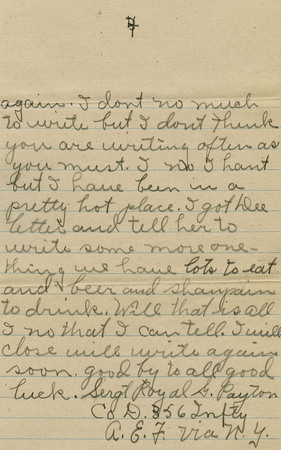 4
again. I dont no much
to write but I dont think
you are writing often as
you must. I no I hant
but I have been in a
pretty hot place. I got Dee
letter and tell her to
write some more one-
thing we have lots to eat
and beer and shanpain
to drink. Will that is all
I no that I can tell. I will
close will write again
soon. good by to all good
luck. Sergt Royal G. Payton
Co D. 356 Infty
A. E. F. Via N. Y.